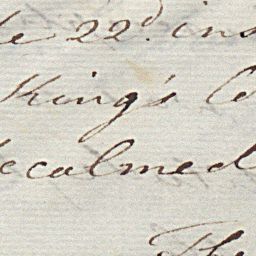 22d. ins
King's Co
becalmed
The